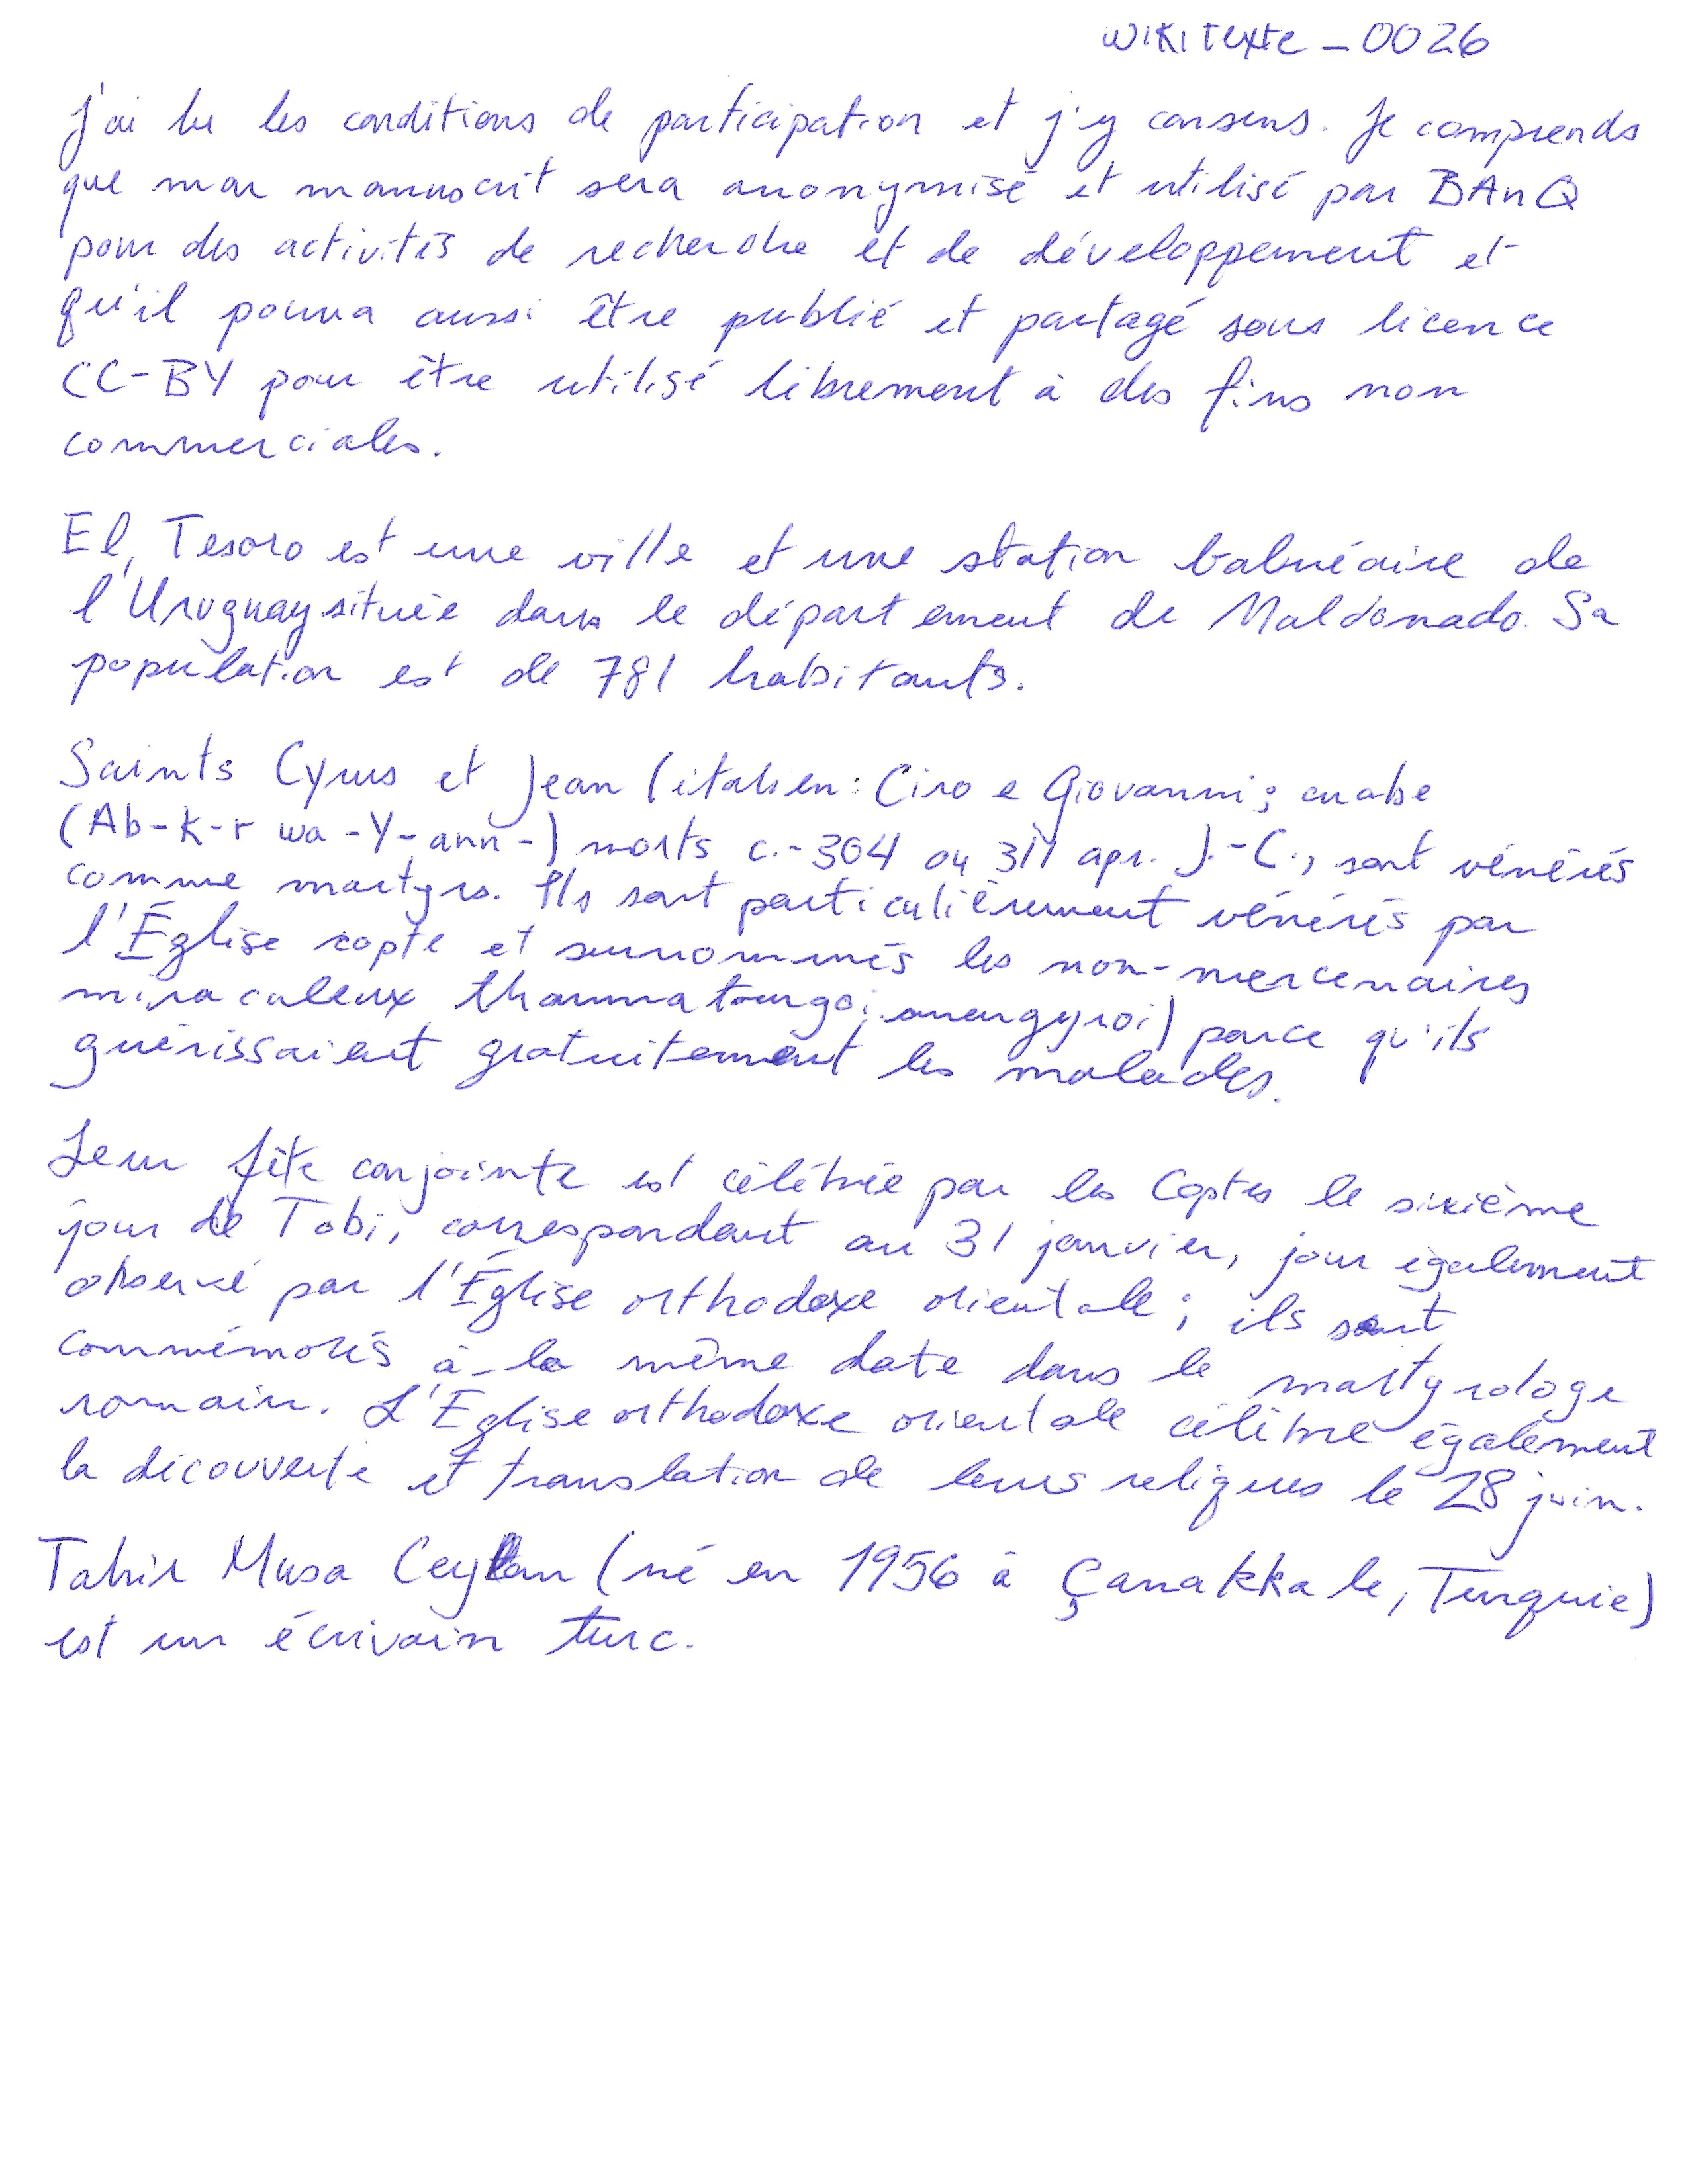 wikitexte_0026
J'ai lu les conditions de participation et j'y consens. Je comprends
que mon manuscrit sera anonymisé et utilisé par BAnQ
pour des activités de recherche et de développement et
qu'il pourra aussi être publié et partagé sous licence
CC-BY pour être utilisé librement à des fins non
commerciales.
El Tesoro est une ville et une station balnéaire de
l'Uruguay située dans le département de Maldonado. Sa
population est de 781 habitants.
Saints Cyrus et Jean (italien : Ciro e Giovanni ; arabe
(Ab-k-r wa-Y-ann-) morts c.-304 ou 311 apr. J.-C., sont vénérés
comme martyrs. Ils sont particulièrement vénérés par
l'Église copte et surnommés les non-mercenaires
miraculeux thaumatourgoi anargyroi) parce qu'ils
guérissaient gratuitement les malades.
Leur fête conjointe est célébrée par les Coptes le sixième
jour de Tobi, correspondant au 31 janvier, jour également
observé par l'Église orthodoxe orientale ; ils sont
commémorés à la même date dans le martyrologe
romain. L'Église orthodoxe orientale célèbre également
la découverte et translation de leurs reliques le 28 juin.
Tahir Musa Ceylan (né en 1956 à Çanakkale, Turquie)
est un écrivain turc.